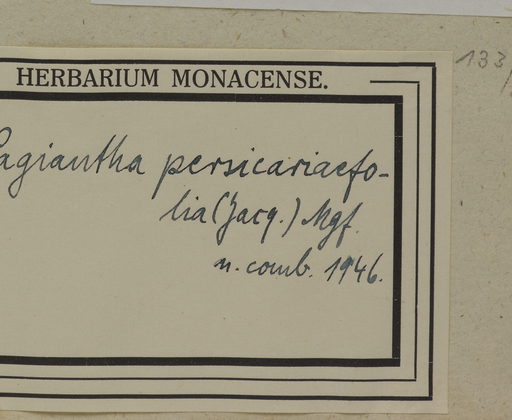 HERBARIUM MONACENSE.
Pagiantha persicariaefo-
lia (Jacq.) Mgf.
n. comb. 1946.
133/